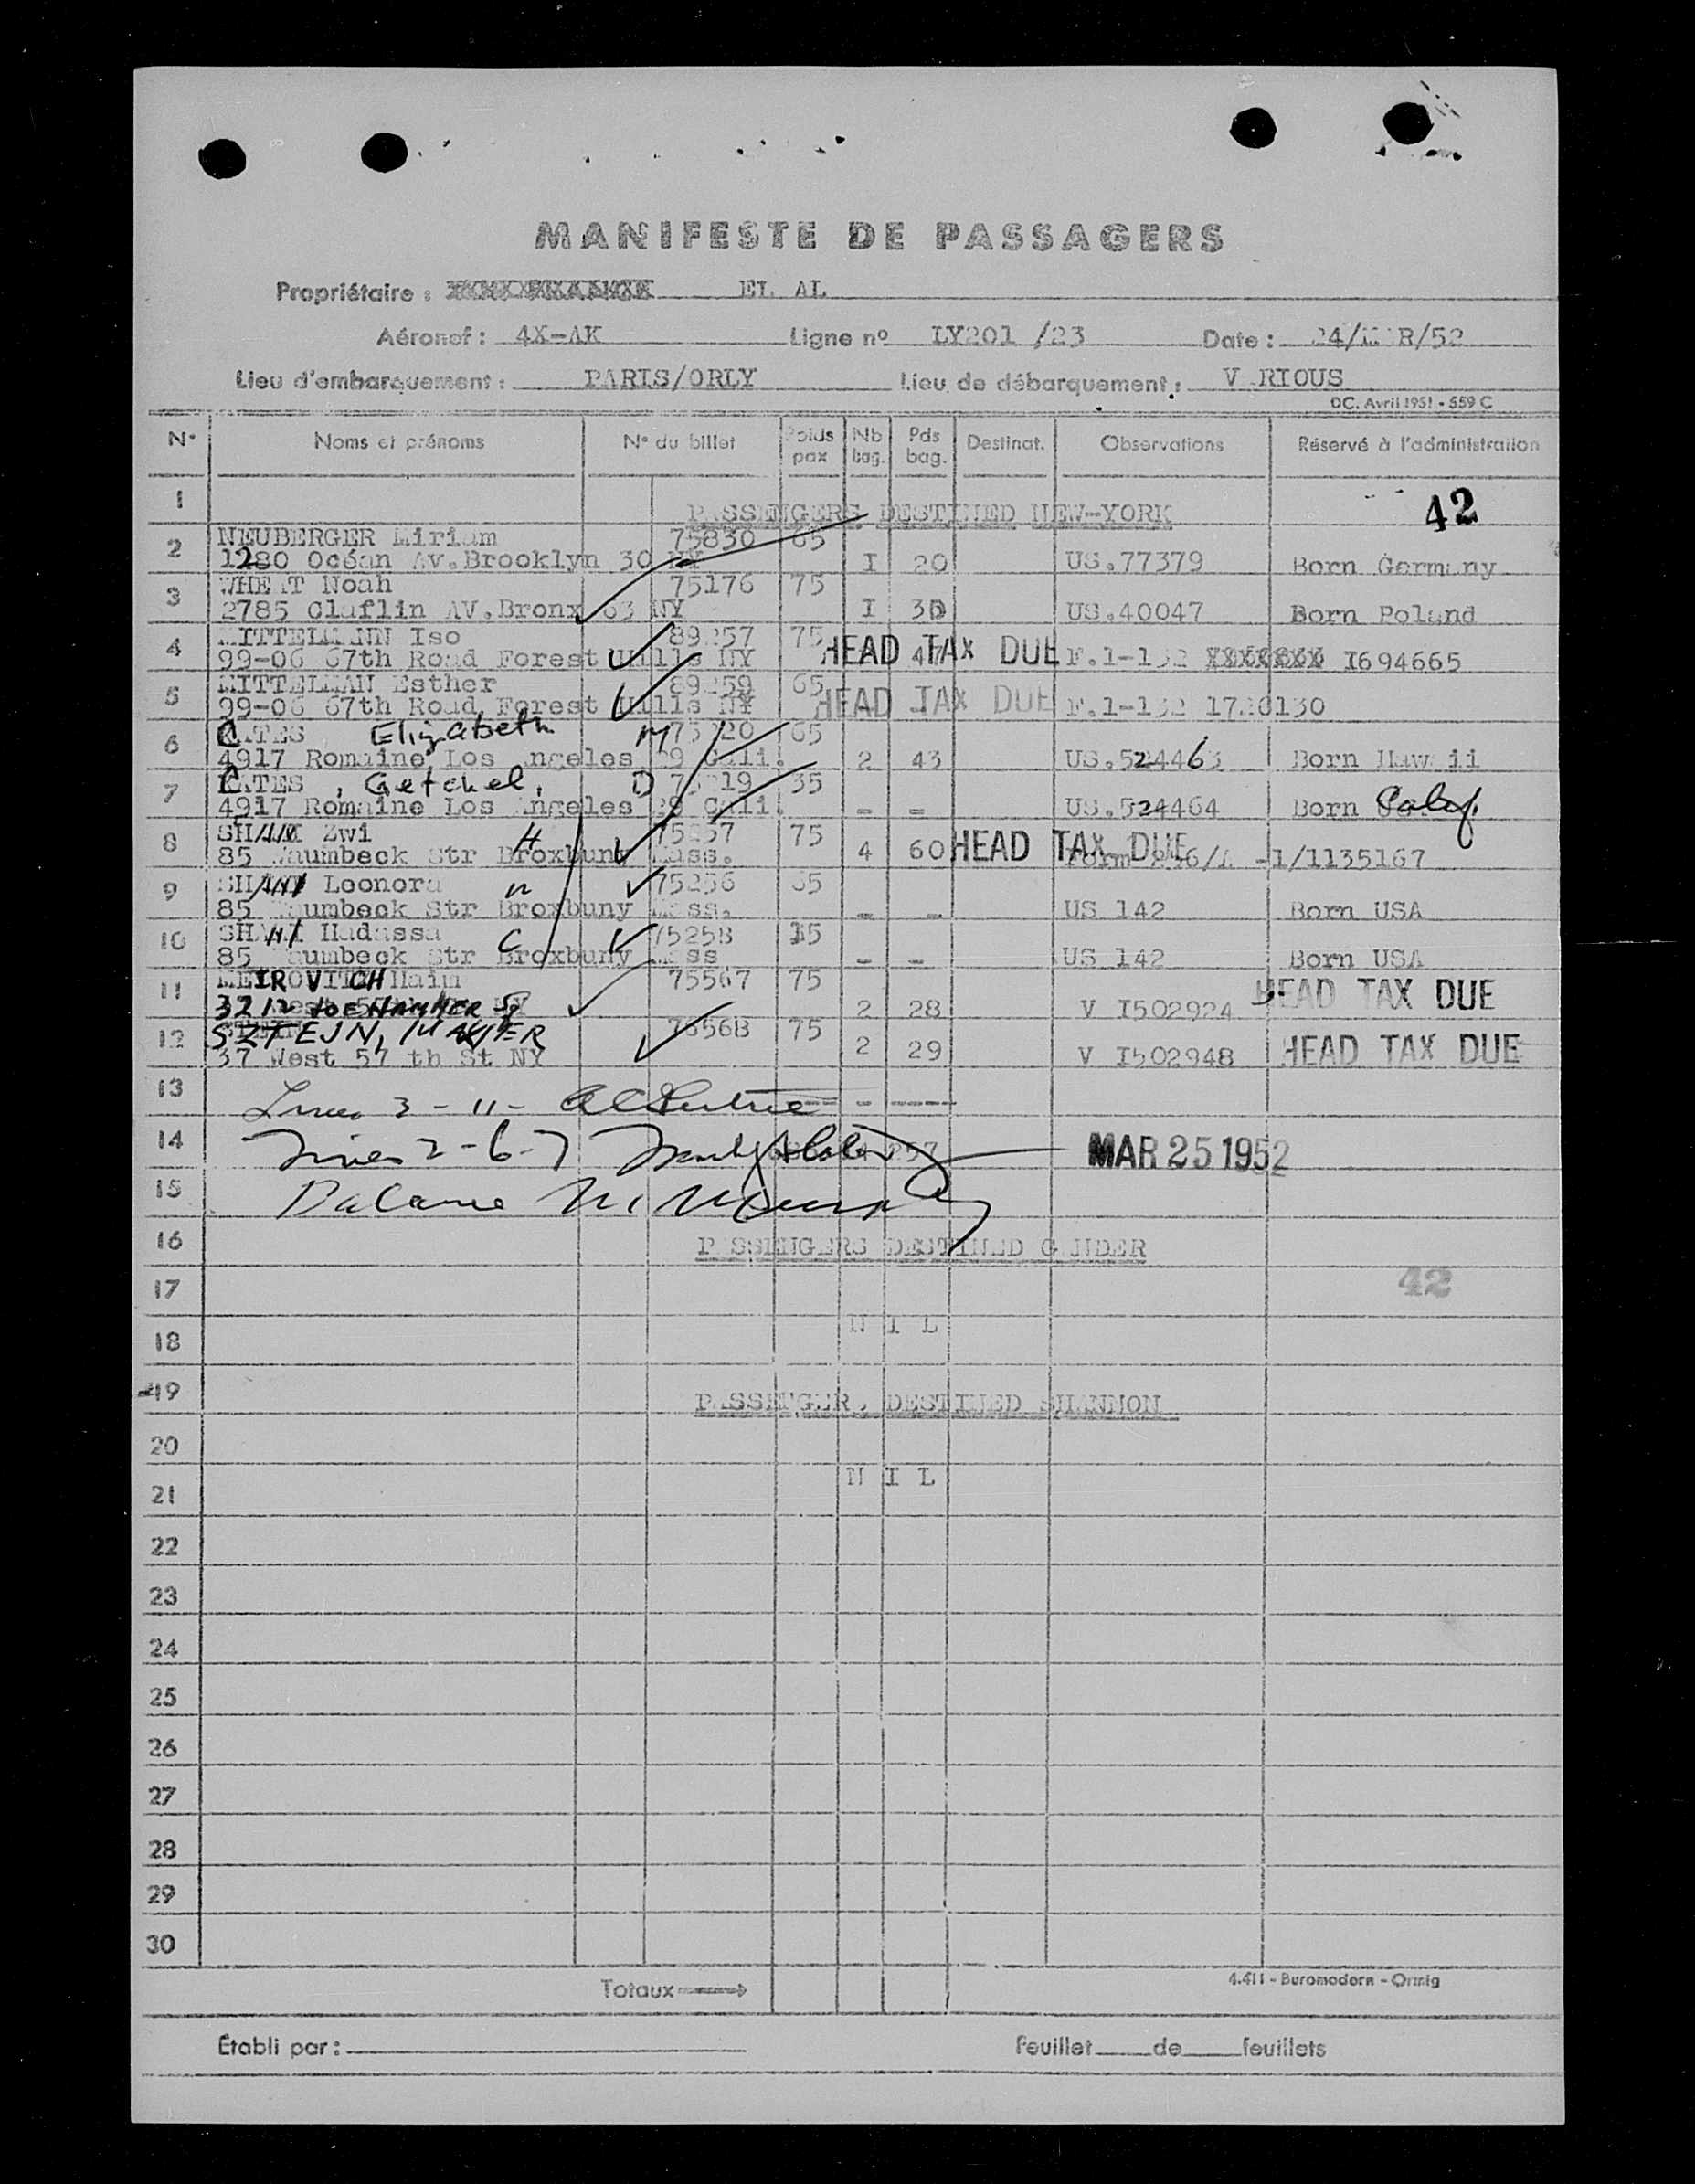 MANIFESTE DE PASSAGERS
Propriétaire : EL AL
Aéronef : 4X-AK Ligne nº LY201 /23 Date : 24/MAR/52
Lieu d'embarquement : PARIS/ORLY Lieu de débarquement : V RIOUS
DC. Avril 1951 - 559 C
Nº Noms et prénoms Nº du billet Poids pax Nb bag. Pds bag. Destinat. Observations Réservé à l'administration
1 PASSENGERS DESTINED NEW-YORK 42
2 NEUBERGER Miriam 75830 65
1280 Océan Av.Brooklyn 30 NY I 20 US.77379 Born Germany
3 WHEAT Noah 75176 75
2785 Claflin AV.Bronx 63 NY I 30 US.40047 Born Poland
4 MITTELMANN Iso 89257 75 HEAD TAX DUE
99-06 67th Road Forest Hills NY 47 F.1-132 I694665
5 MITTELMAN Esther 89259 65 HEAD TAX DUE
99-06 67th Road Forest Hills NY F.1-132
6 CATES Elizabeth M 65
4917 Romaine Los Angeles 29 Cali. 2 43 US.524463 Born Hawaii
7 CATES , Getchel, D 35
4917 Romaine Los Angeles 29 Cali. - - US.524464 Born Calif.
8 Zwi H 75 HEAD TAX DUE
85 Waumbeck Str Broxbuny Mass. 4 60 -1/1135167
9 Leonora 75256
85 Waumbeck Str Broxbuny Mass. - - US 142 Born USA
10 Hadassa C 75258
85 Waumbeck Str Broxbuny Mass - - US 142 Born USA
11 MEIROVITCH Haim 75567 75 HEAD TAX DUE
3212 2 28 V I502924
12 SZTEJN, 75568 75 HEAD TAX DUE
37 West 57 th St NY 2 29 V I502948
13 Lines 3 - 11 -
14 Lines 2-6-7 257 MAR 25 1952
15 Balance
16 PASSENGERS DESTINED GANDER
17 42
18 N I L
19 PASSENGERS DESTINED SHANNON
20
21 N I L
22
23
24
25
26
27
28
29
30
Totaux 4.411 - Buromodern - Ormig
Établi par : Feuillet de feuillets